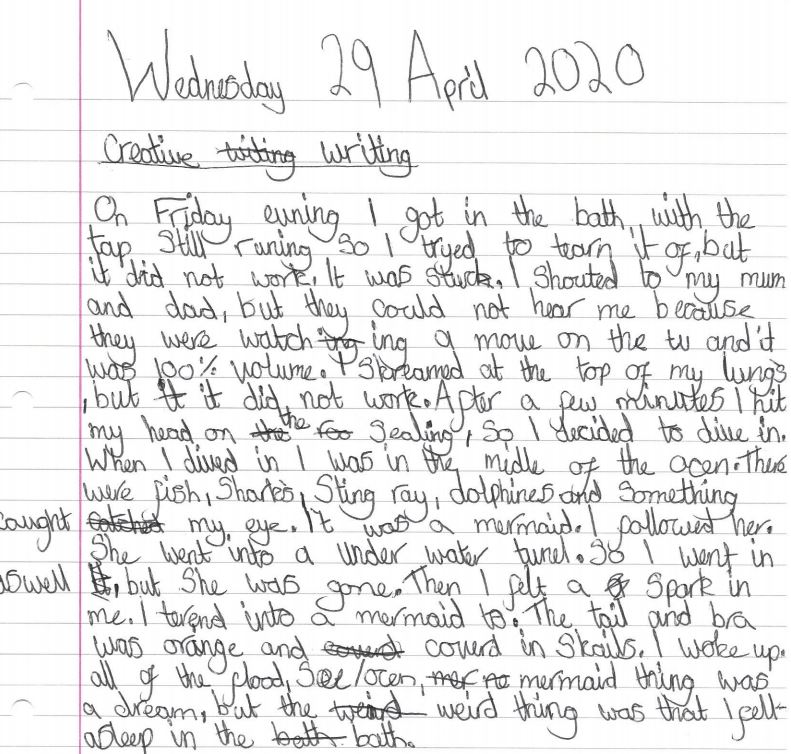 Wednesday 29 April 2020
Creative writing
On Friday evning I got in the bath, with the
tap still runing so I tryed to tearn it of, but
it did not work. It was stuck. I shouted to my mum
and dad, but they could not hear me because
they were watching a move on the tv and it
was 100% volume. I Skreamed at the top of my lungs
, but it did not work. After a few minutes I hit
my head on the sealing, so I decided to dive in.
When I dived in I was in the midle of the ocen. There
were fish, sharks, Sting ray, dolphines and something
caught my eye. It was a mermaid. I follow­ed her.
She went into a under water tunel. So I went in
aswell, but she was gone. Then I felt a spark in
me. I terend into a mermaid to. The tail and bra
was orange and coverd in skails. I woke up.
all of the flood, See/ocen, mermaid thing was
a dream, but the weird thing was that I fell
asleep in the bath.